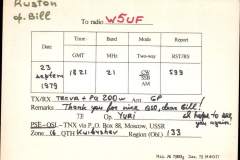 Ruston
of Bill
To radio W5UF
Date Time Band Mode Report
GMT MHz Two-way RST/RS
23
septem
1979
1821 21 CW
SSB
AM 599
TX/RX TRCVR+PA 200w Ant GP
Remarks Thank you for nice QSO, dear Bill!
73 Op. Yuri I hope to see
you again!
PSE-QSL-TNX via P.O. Box 88, Moscow, USSR
Zone 16 QTH Kuibyshev Region (Obl.) 133